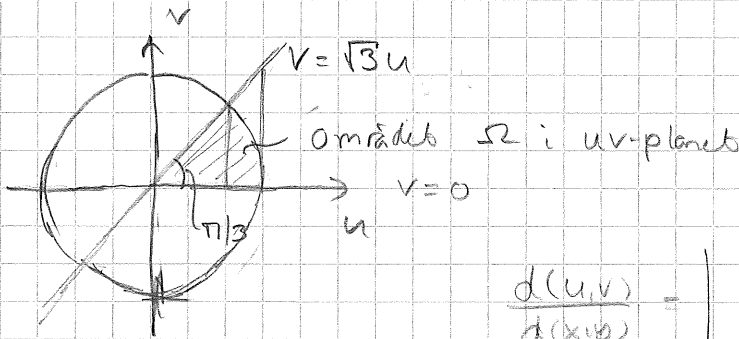 v
v = √3 u
området Ω i uv-planet
v = 0
u
π/3
d(u,v)
= |
d(x,y)